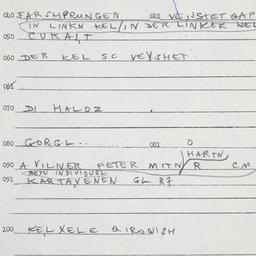 040 FARSHPRUNGEN
IN LINKN KEL / IN DER LINKER KEL
050
060 DER KEL SC VEYSHET
061
070 DI HALDZ
080 GORGL.. 081 O
HARTN
090 A VILNER PETER MITN R CM
BEYN INDIVIDUEL
091 KARTAVENEN GL R7
100 KELXELE QIRONISH